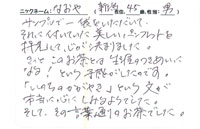 ニックネーム:なおや(新潟在住,45歳,性別:男)
サンプルで一袋をいただいて
それに付いていた美しいパンフレットを
拝見して、心が決まりました。
きっとこのお茶とは生涯のつきあいに
なる!という予感がしたのです。
「いのちかがやき」という文が
本当に心にしみるようでした。
そして、その言葉通りのお茶でした。